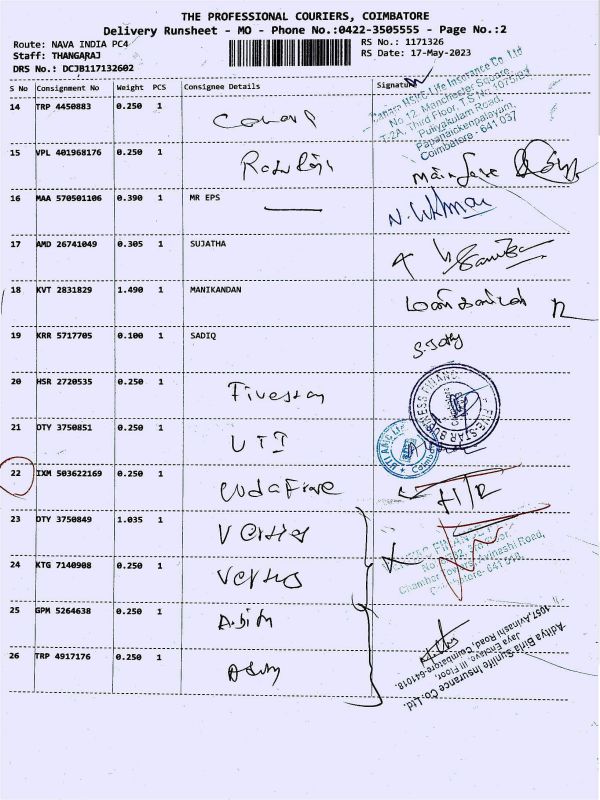 THE PROFESSIONAL COURIERS, COIMBATORE
Delivery Runsheet - MO - Phone No.:0422-3505555 - Page No.:2
Route: NAVA INDIA PC4
RS No.: 1171326
Staff: THANGARAJ
RS Date: 17-May-2023
DRS No.: DCJB117132602
S No Consignment No Weight PCS Consignee Details Signature
Canara HSBC Life Insurance Co. Ltd
No 12, Manchester Square
T-2A, Third Floor,
Puliyakulam Road,
Papanaickenpalayam,
Coimbatore - 641 037
14 TRP 4450883 0.250 1
15 VPL 401968176 0.250 1
16 MAA 570501106 0.390 1 MR EPS
17 AMD 26741049 0.305 1 SUJATHA
18 KVT 2831829 1.490 1 MANIKANDAN
19 KRR 5717705 0.100 1 SADIQ
20 HSR 2720535 0.250 1 Fivestar
FIVE-STAR BUSINESS FINANCE
21 DTY 3750851 0.250 1 UTI
22 IXM 503622169 0.250 1 Vodafone
23 DTY 3750849 1.035 1 Veritas
Avinashi Road,
24 KTG 7140908 0.250 1 Veritas
25 GPM 5264638 0.250 1
26 TRP 4917176 0.250 1
Aditya Birla Sunlife Insurance Co. Ltd.
Jaya Enclave, III Floor,
1057, Avinashi Road, Coimbatore-641018.